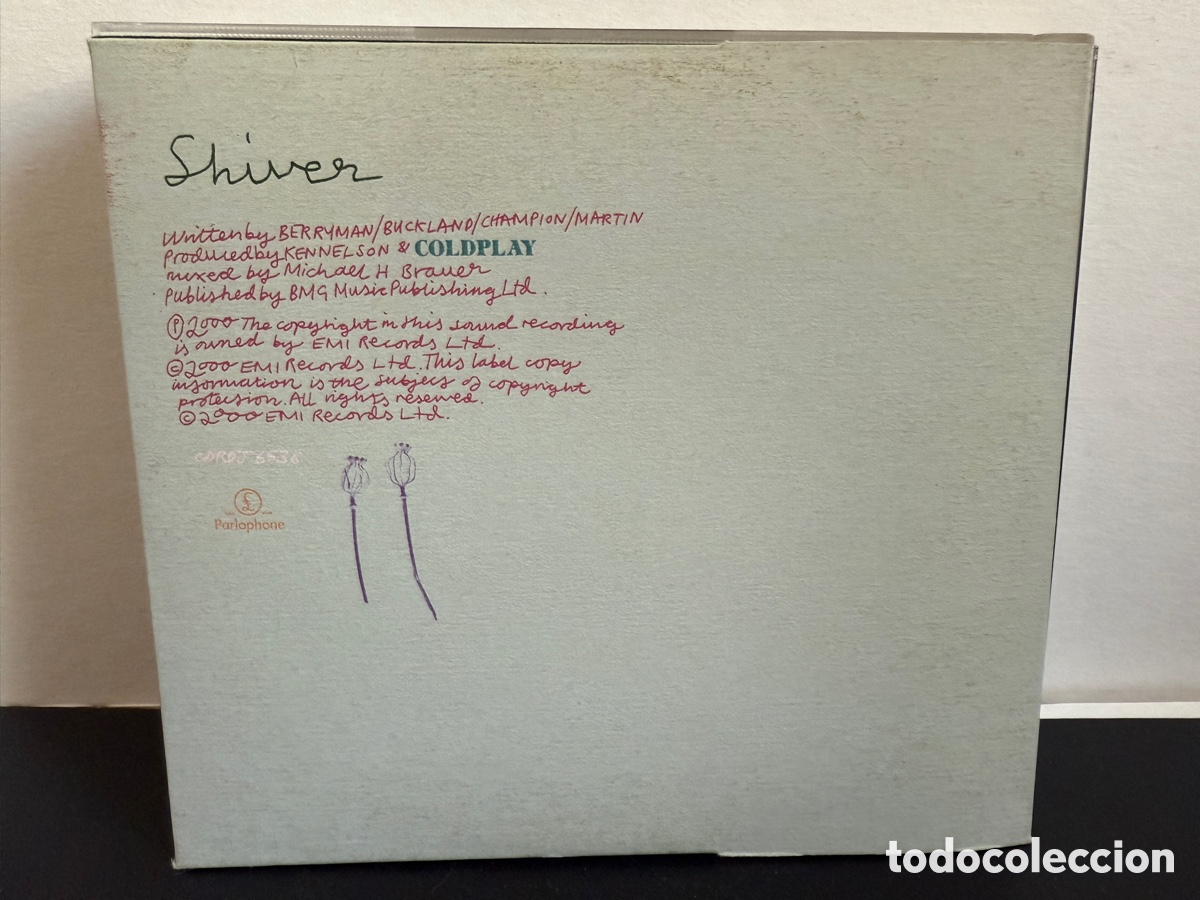 Shiver
Written by BERRYMAN/BUCKLAND/CHAMPION/MARTIN
Produced by KEN NELSON & COLDPLAY
mixed by Michael H Brauer
Published by BMG Music Publishing Ltd.
Ⓟ2000 The copyright in this sound recording
is owned by EMI Records Ltd.
©2000 EMI Records Ltd. This label copy
information is the subject of copyright
protection. All rights reserved.
©2000 EMI Records Ltd.
CDRDJ 6536
£
Parlophone
todocoleccion